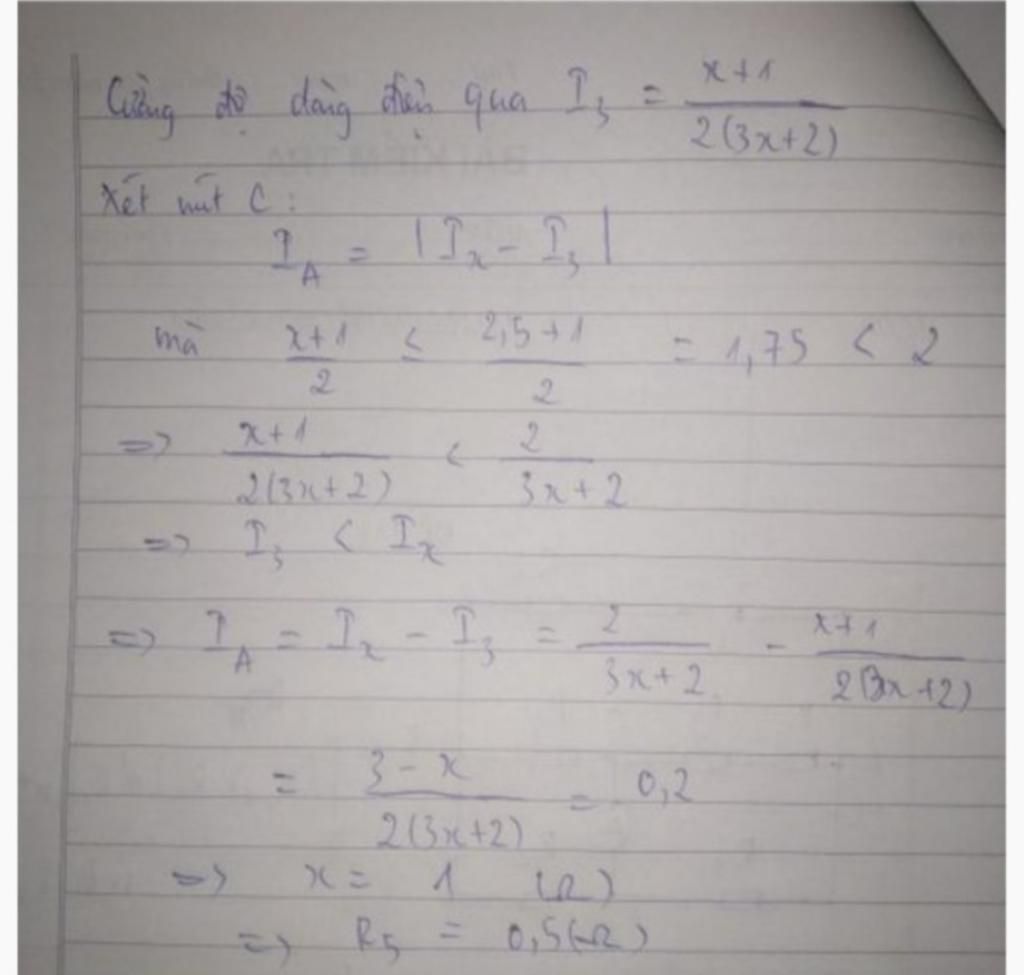 Cường độ dòng điện qua I₃ = (x+1)/(2(3x+2))
Xét nút C :
I_A = |I_x - I₃|
mà (x+1)/2 ≤ (2,5+1)/2 = 1,75 < 2
=> (x+1)/(2(3x+2)) < 2/(3x+2)
=> I₃ < I_x
=> I_A = I_x - I₃ = 2/(3x+2) - (x+1)/(2(3x+2))
= (3-x)/(2(3x+2)) = 0,2
=> x = 1 (Ω)
=> R₅ = 0,5(Ω)